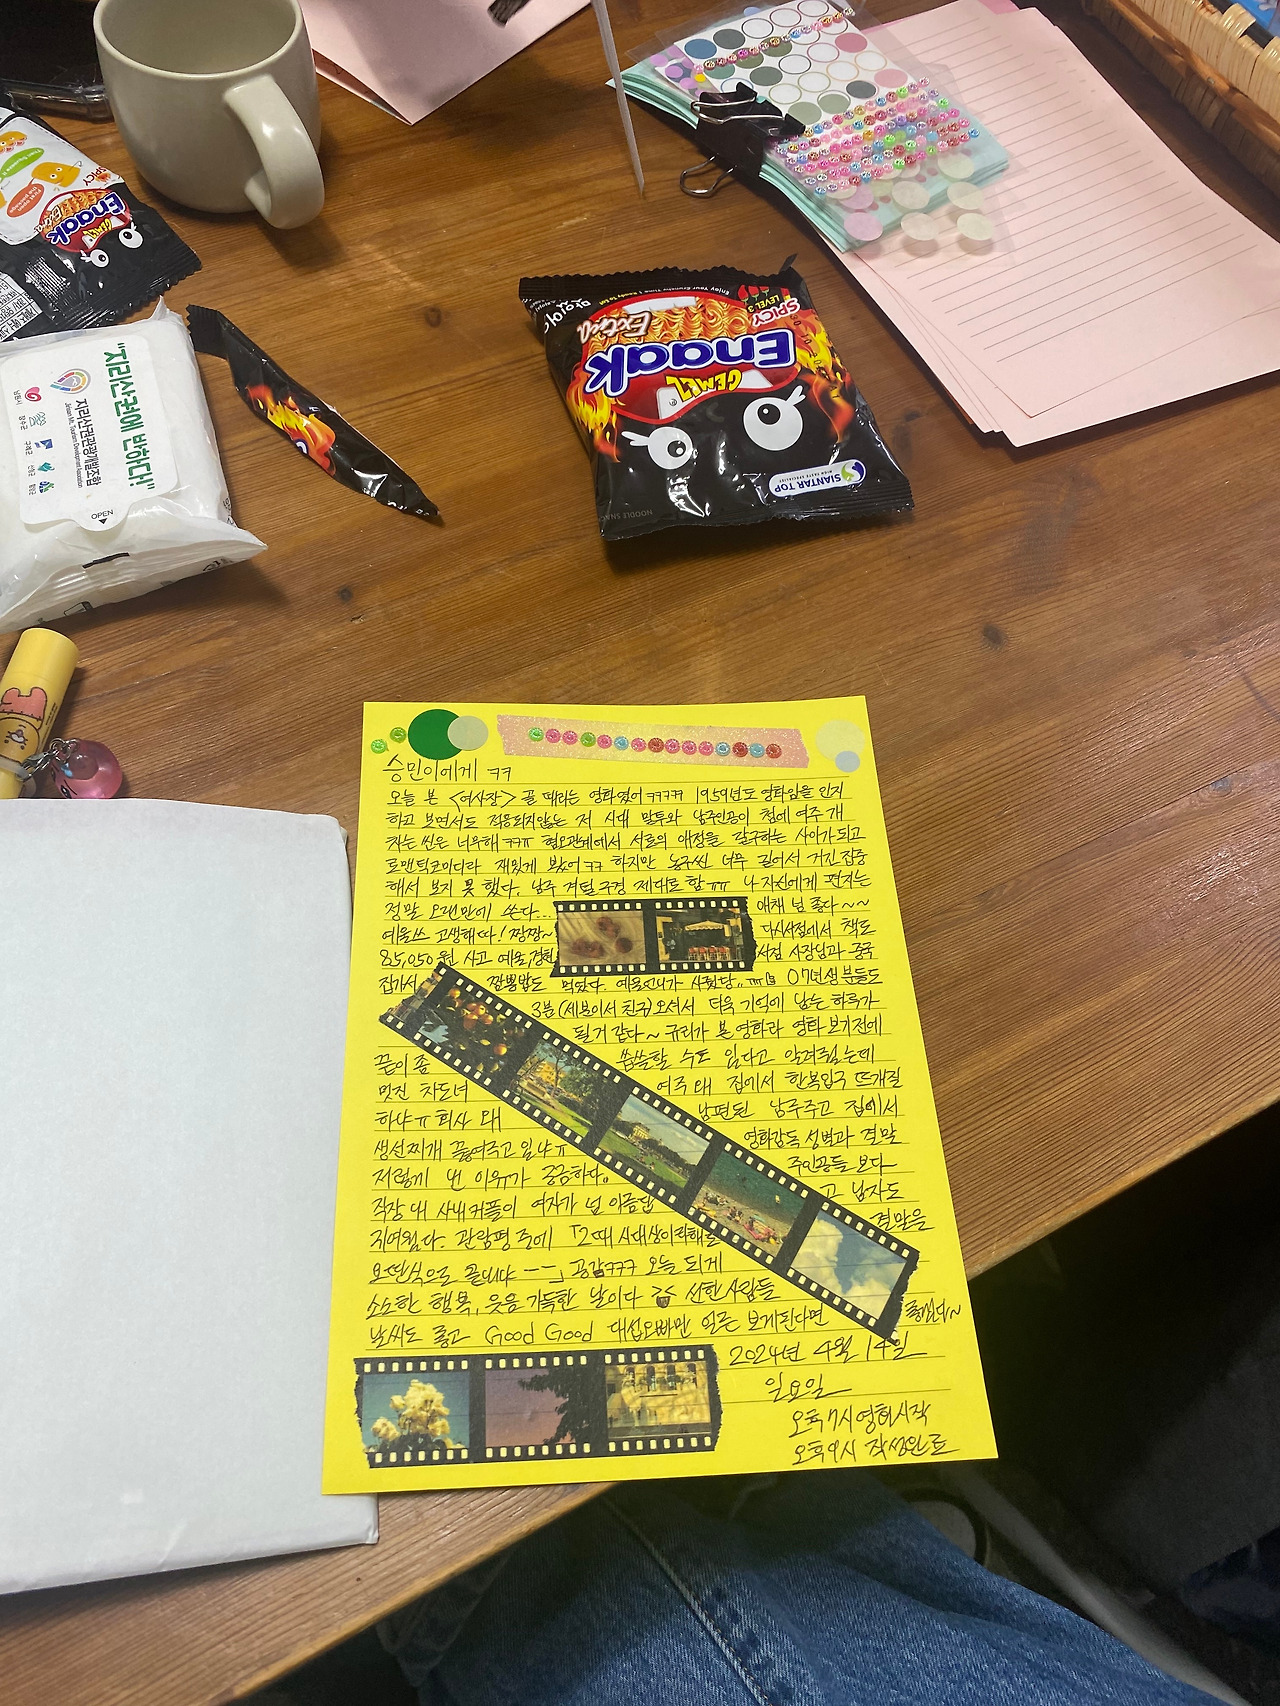 SPICY
Enaak
"지리산권에 반하다!"
지리산권관광개발조합
OPEN
Enjoy Your Crunchy Time!
SPICY
LEVEL 3
Extra
Enaak
GEMEZ
SIANTAR TOP
NOODLE SNACK
승민이에게 ㅋㅋ
오늘 본 <여사장> 골 때리는 영화였어ㅋㅋㅋㅋ 1959년도 영화임을 인지
하고 보면서도 적응되지않는 저 시대 말투와 남주인공이 첨에 여주 개
차는 씬은 너무해 ㅋㅋㅠ 혐오관계에서 서로의 애정을 갈구하는 사이가 되고
로맨틱코미디라 재밌게 봤어ㅋㅋ 하지만 농구씬 너무 길어서 거진 집중
해서 보지 못 했다. 남주 겨털 구경 제대로 함ㅠㅠ 나 자신에게 편지는
정말 오랜만에 쓴다... 야채 넘 좋다~~
예울쓰 고생해따! 짱짱~ 다시서점에서 책도
85,050원 사고 예울, 서점 사장님과 중국
집가서 짬뽕밥도 먹었다. 예울언니가 사줬당.. 07년생 분들도
3분(세분이서 친구)오셔서 더욱 기억에 남는 하루가
될거 같다~ 규리가 본 영화라 영화 보기전에
끝이 좀 씁쓸할 수도 있다고 알려줬는데
멋진 차도녀 여주 왜 집에서 한복입구 뜨개질
하냐ㅠ 회사 왜 남편된 남주주고 집에서
생선찌개 끓여주고 있냐ㅠ 영화감독 성별과 결말
저렇게 낸 이유가 궁금하다. 주인공들 보다
직장 내 사내커플이 여자가 넘 아름답고 남자도
귀여웠다. 관람평 중에 「그때 시대상이라해도 결말을
요딴식으로 끝내냐 ㅡㅡ」 공감ㅋㅋㅋ 오늘 되게
소소한 행복, 웃음 가득한 날이다 >< 선한 사람들
날씨도 좋고 Good Good 대섭오빠만 얼른 보게된다면 좋겠다~
2024년 4월 14일
일요일
오후7시 영화시작
오후9시 작성완료